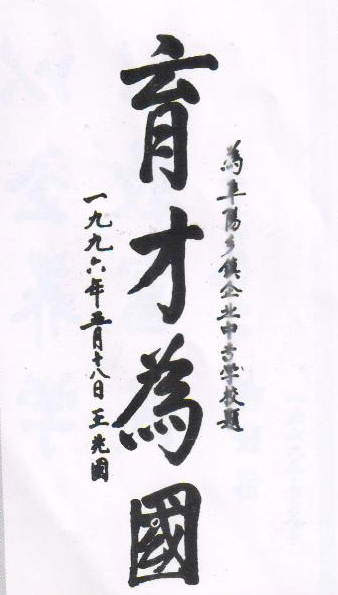 為阜陽乡鎮企业中专学校題
育才為國
一九九六年五月十八日王光國